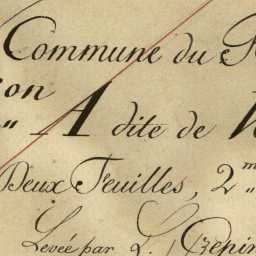 Commune du
on
" A dite de
Deux Feuilles, 2.me
Levée par L.